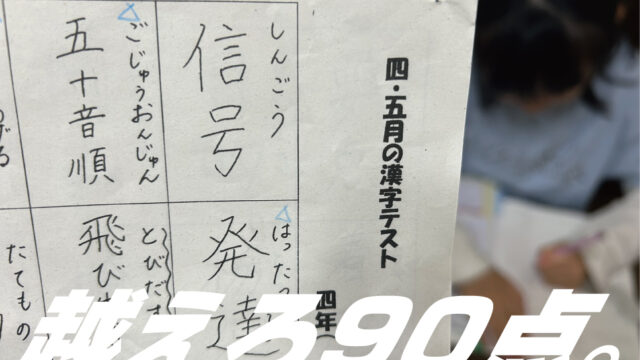 四・五月の漢字テスト
四年
しんごう
信号
はったつ
発達
ごじゅうおんじゅん
五十音順
とびだす
飛び
たてもの
越えろ90点。